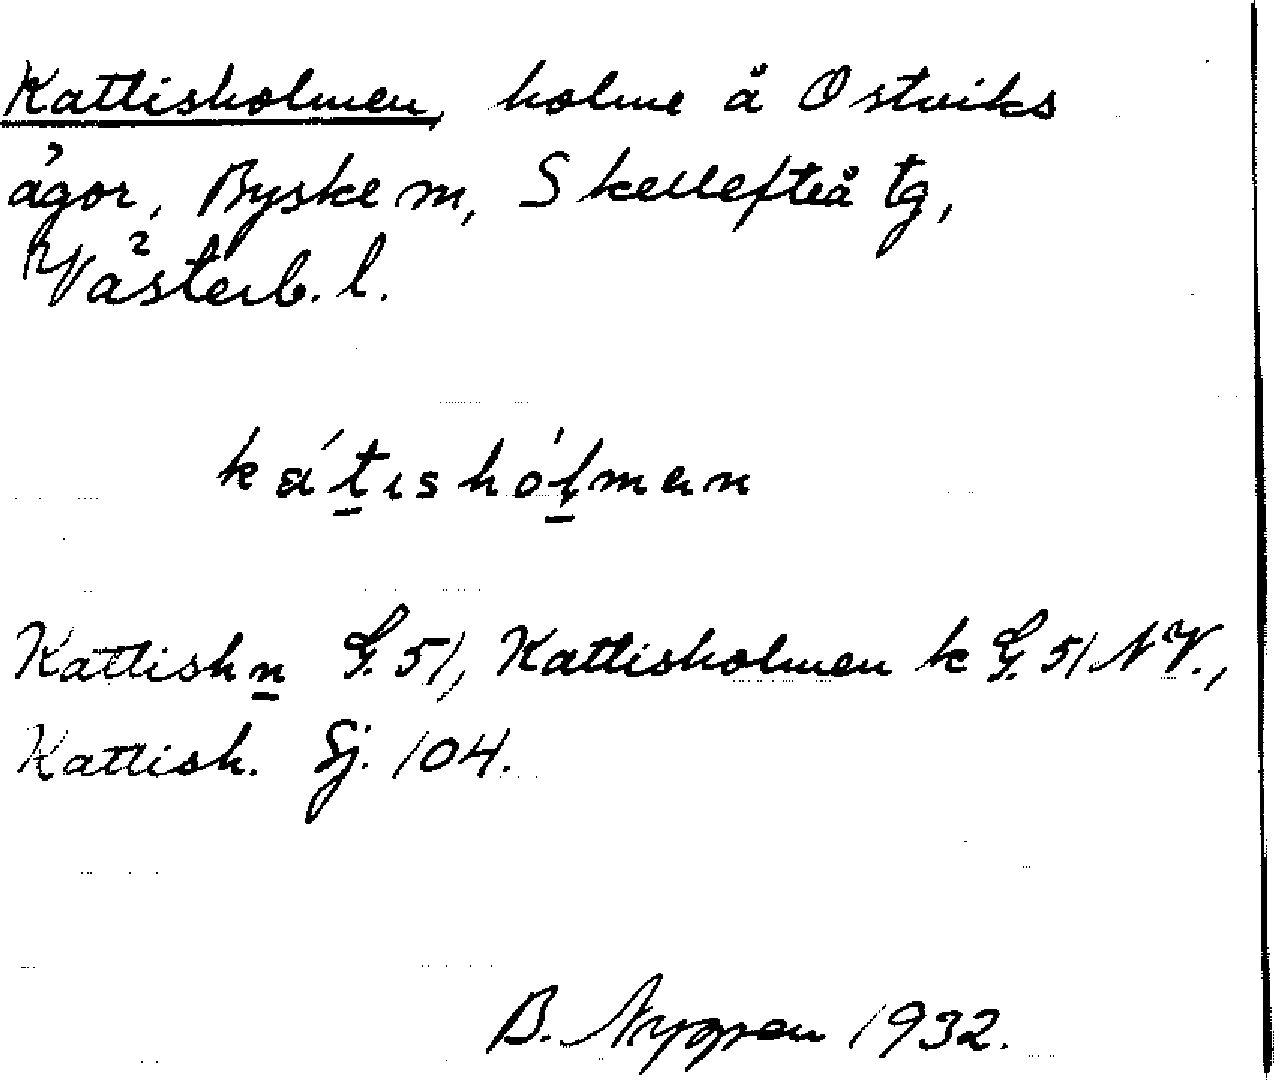 Kattisholmen, holme å Ostviks
ägor, Byske sn, Skellefteå tg,
Västerb. l.
kátishólmen
Kattishn G. 51, Kattisholmen k G. 51 NV.,
Kattish. Sj. 104.
B. 1932.